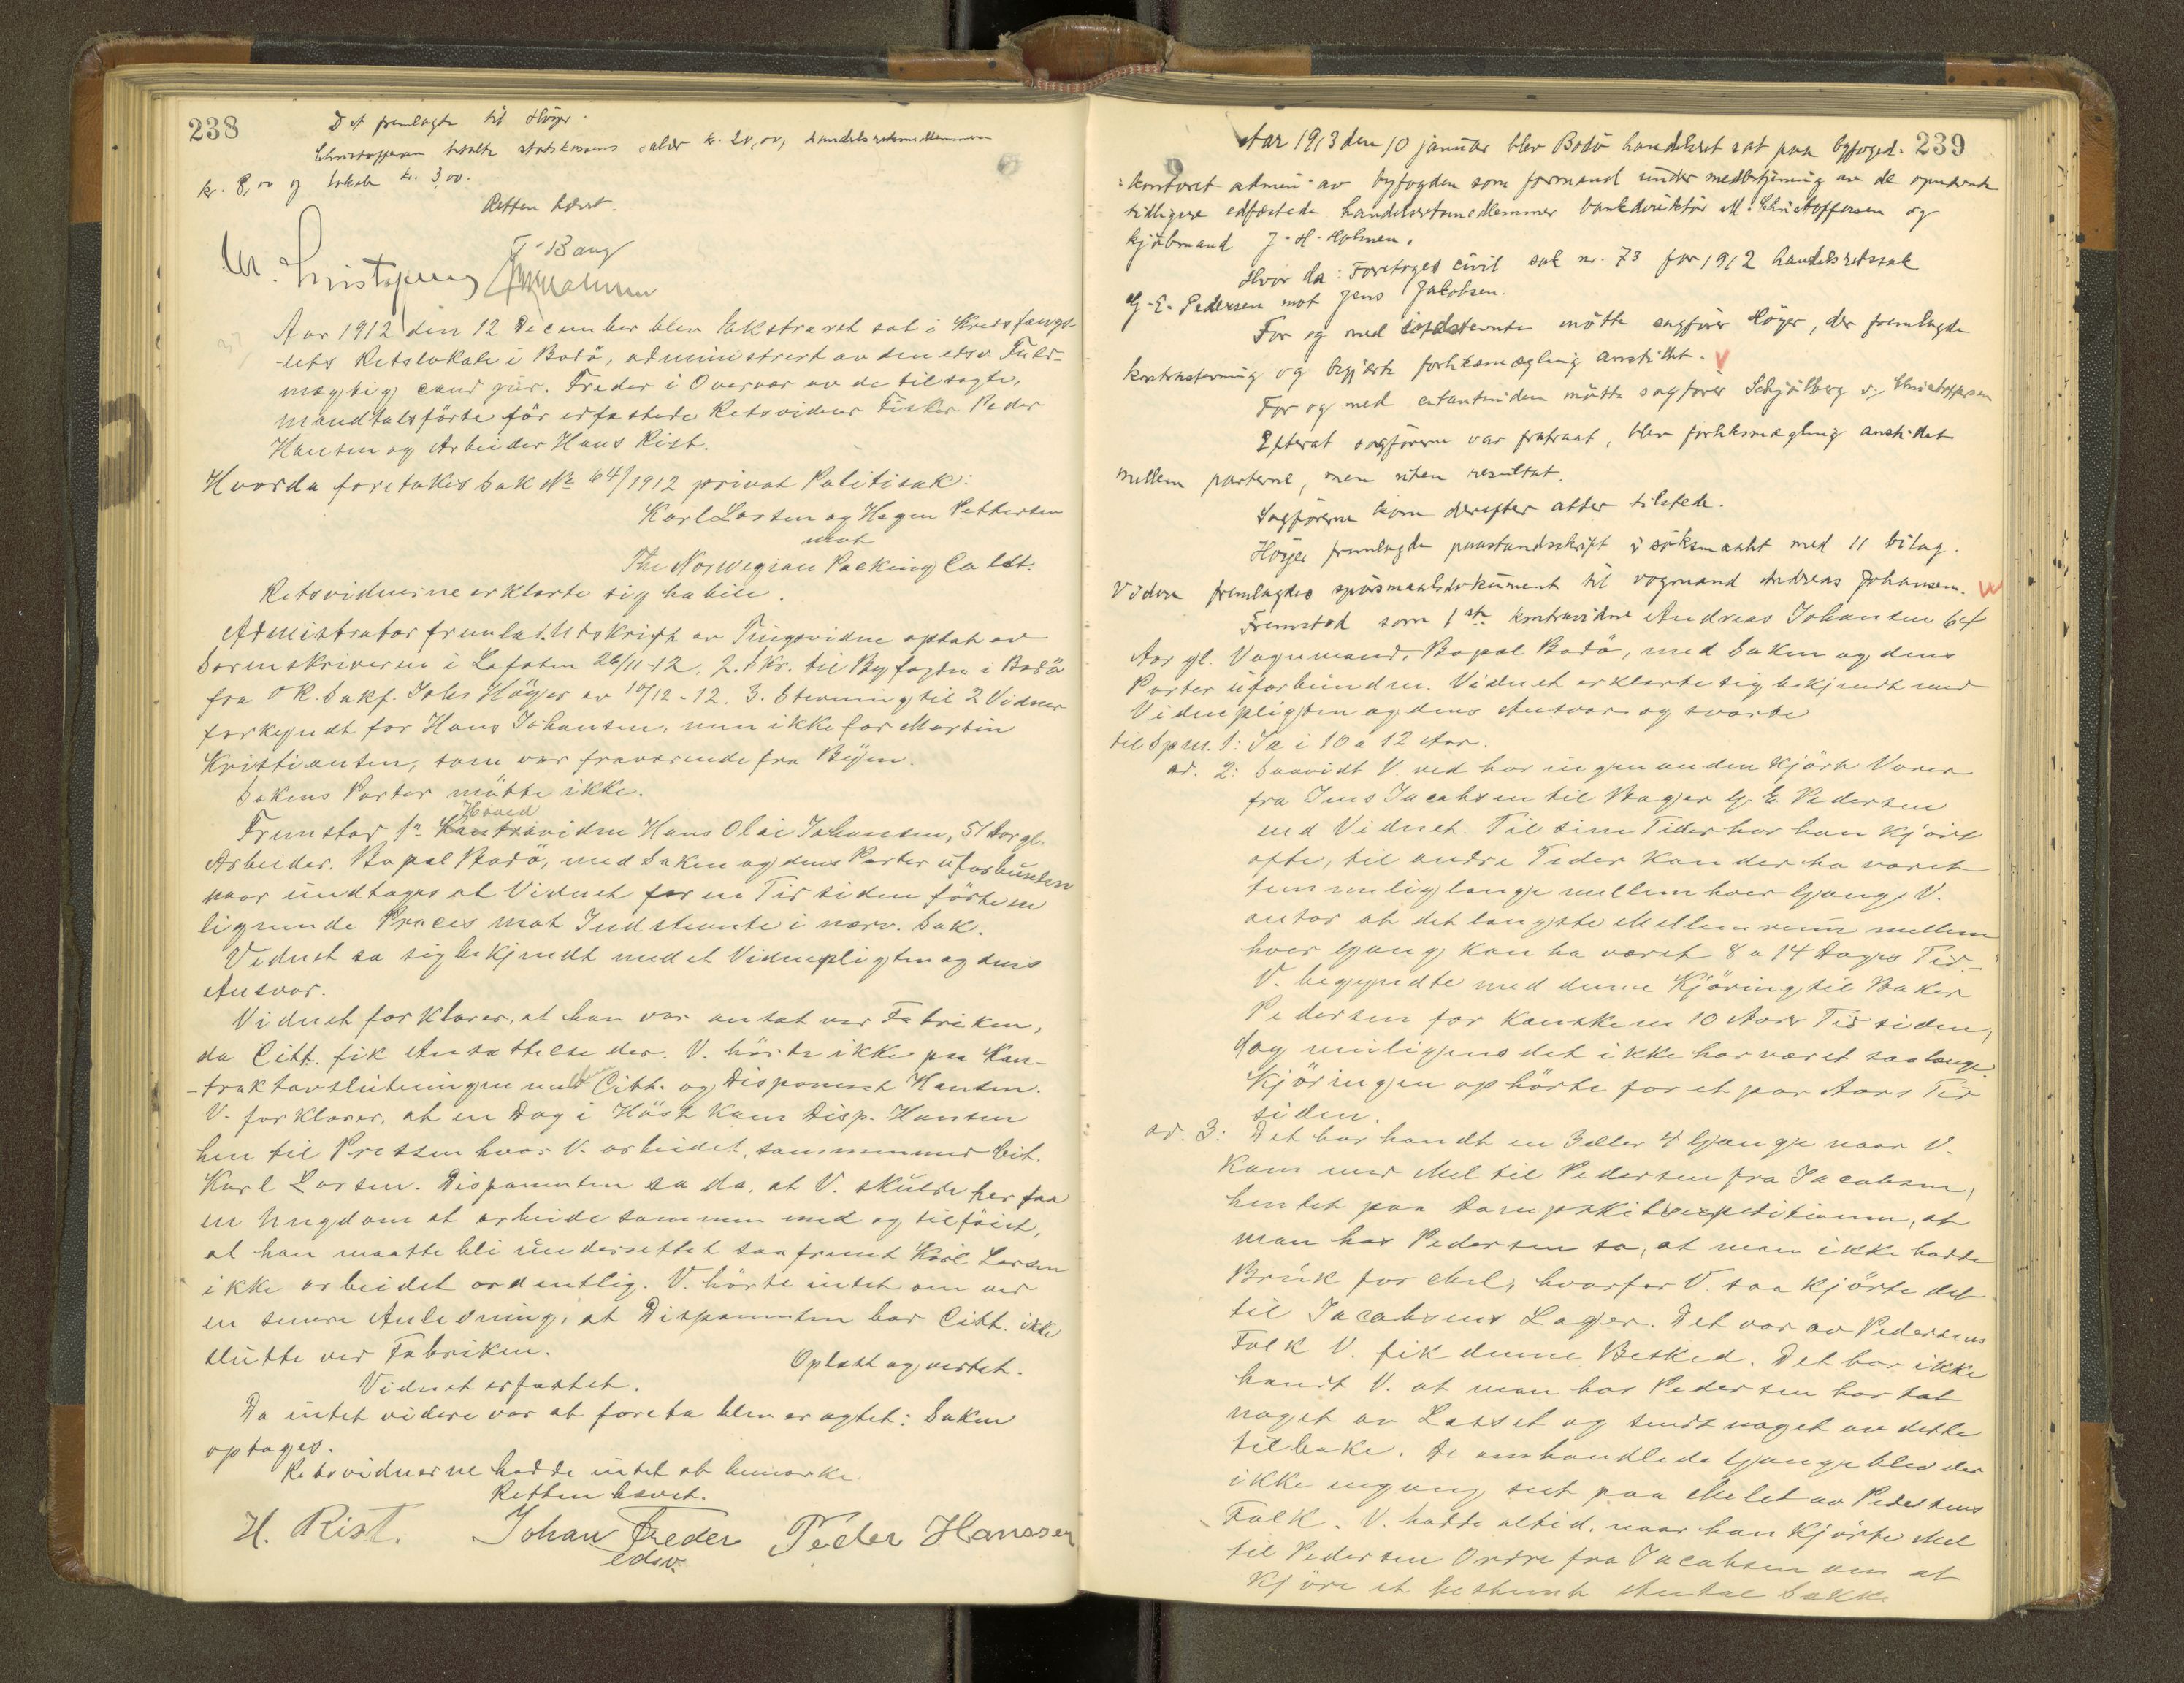 238
Det fremlagte til Høyer.
Christoffersen betalte statskassens salær kr. 20,00, handelsretsmedlemmenes
kr. 8,00 og lokale kr. 3,00.
Retten hævet.
T. Bang
M. Christophersen
Aar 1912 den 12 December blev Ekstraret sat i Kredsfængs-
-lets Retslokale i Bodö, administrert av den edsv. Fuld-
mægtig cand jur. Freder i Overvær av de tilsagte,
mandtalsförte för edfæstede Retsvidner Fisker Peder
Hansen og Arbeider Hans Rist.
Hvorda foretokes Sak No 64/1912 privat Politisak:
Karl Larsen og Hagen Pettersen
mot
The Norwegian Packing Co Ldt.
Retsvidnerne erklærte sig habile.
Administrator fremla 1. Utskrift av Tingsvidne optat av
Sorenskriveren i Lofoten 26/11-12. 2. Skr. til Byfogden i Bodö
fra O.R. Sakf. Johs Höyer av 10/12-12. 3. Stevning til 2 Vidner
forkyndt for Hans Johansen, men ikke for Martin
Kristiansen, som var fraværende fra Byen.
Sakens Parter mötte ikke.
Hoved
Fremstod 1ste Kontravidne Hans Olai Johansen, 51 Aar gl.
Arbeider. Bopæl Bodö, med Saken og dens Parter uforbunden
naar undtages at Vidnet for en Tid siden förte en
lignende Proces mot Indstevnte i nærv. Sak.
Vidnet sa sig bekjendt med et Vidnepligten og dens
Ansvar.
Vidnet forklarer, at han var ansat ved Fabriken,
da Citt. fik Ansættelse der. V. hörte ikke paa Kon-
-traktavslutningen mellem Citt. og Disponent Hansen.
V. forklarer, at en Dag i Höst kom Disp. Hansen
hen til Pressen hvor V. arbeidet, sammen med Cit.
Karl Larsen. Disponenten sa da, at V. skulde her faa
en Ungdom at arbeide sammen med og tilföiet,
at han maatte bli underrettet saafremt Karl Larsen
ikke arbeidet ordentlig. V. hörte intet om ved
en senere Anledning, at Disponenten bad Citt. ikke
slutte ved Fabriken.
Oplæst og vedtat.
Vidnet edfæstet.
Da intet videre var at foreta blev eragtet: Saken
optages.
Retsvidnerne hadde intet at bemærke.
Retten hævet.
H. Rist. Johan Freder Peder Hanssen
edsv.
239
Aar 1913 den 10 januar blev Bodö handelsret sat paa byfoged-
kontoret admin. av byfogden som formand under medbetjening av de opnævnte
tidligere edfæstede handelsretsmedlemmer bankdirektör M. Christoffersen og
kjöbmand J. H. Holmen.
Hvor da: Foretoges civil sak nr. 73 for 1912 handelsretssak
G. E. Pedersen mot Jens Jakobsen.
For og med indstevnte mötte sagförer Höyer, der fremlagde
kontrastevning og begjærte forliksmægling anstillet. V
For og med citantinden mötte sagförer Schjölberg v. Christoffersen
Efterat sagförerne var fratraat, blev forliksmægling anstillet
mellem parterne, men uten resultat.
Sagförerne kom derefter atter tilstede.
Höyer fremlagde paastandsskrift i söksmaalet med 11 bilag.
Videre fremlagdes spörsmaalsdokument til vognmand Andreas Johansen. W
Fremstod som 1ste kontravidne Andreas Johansen 64
Aar gl. Vognmand, Bopæl Bodö, med Saken og dens
Parter uforbunden. Vidnet erklærte sig bekjendt med
Vidnepligten og dens Ansvar og svarte
til Spm. 1: Ja i 10 a 12 Aar.
ad. 2: Saavidt V. ved har ingen anden kjört Varer
fra Jens Jacobsen til Bager G. E. Pedersen
end Vidnet. Til sine Tider har han kjört
ofte, til andre Tider kan der ha været
temmelig længe mellem hver Gang. V.
antar at det længste Mellemrum mellem
hver Gang kan ha været 8 a 14 Dages Tid.
V. begyndte med denne Kjöring til Baker
Pedersen for kanskem 10 Aars Tid siden,
dog muligens det ikke har været saa længe.
Kjöringen ophörte for et par Aars Tid
siden.
ad. 3: Det har hændt en 3 eller 4 Gange naar V.
kom med Mel til Pedersen fra Jacobsen,
hentet paa Dampskibsexpeditionen, at
man hos Pedersen sa, at man ikke hadde
Bruk for Mel, hvorfor V. saa kjörte det
til Jacobsens Lager. Det var av Pedersens
Folk V. fik denne Besked. Det har ikke
hændt V. at man hos Pedersen har tat
noget av Læsset og sendt noget av dette
tilbake. De omhandlede Gange blev der
ikke engang set paa Melet av Pedersens
Folk. V. hadde altid, naar han kjörte Mel
til Pedersen Ordre fra Jacobsen om at
kjöre et bestemt Antal Sække